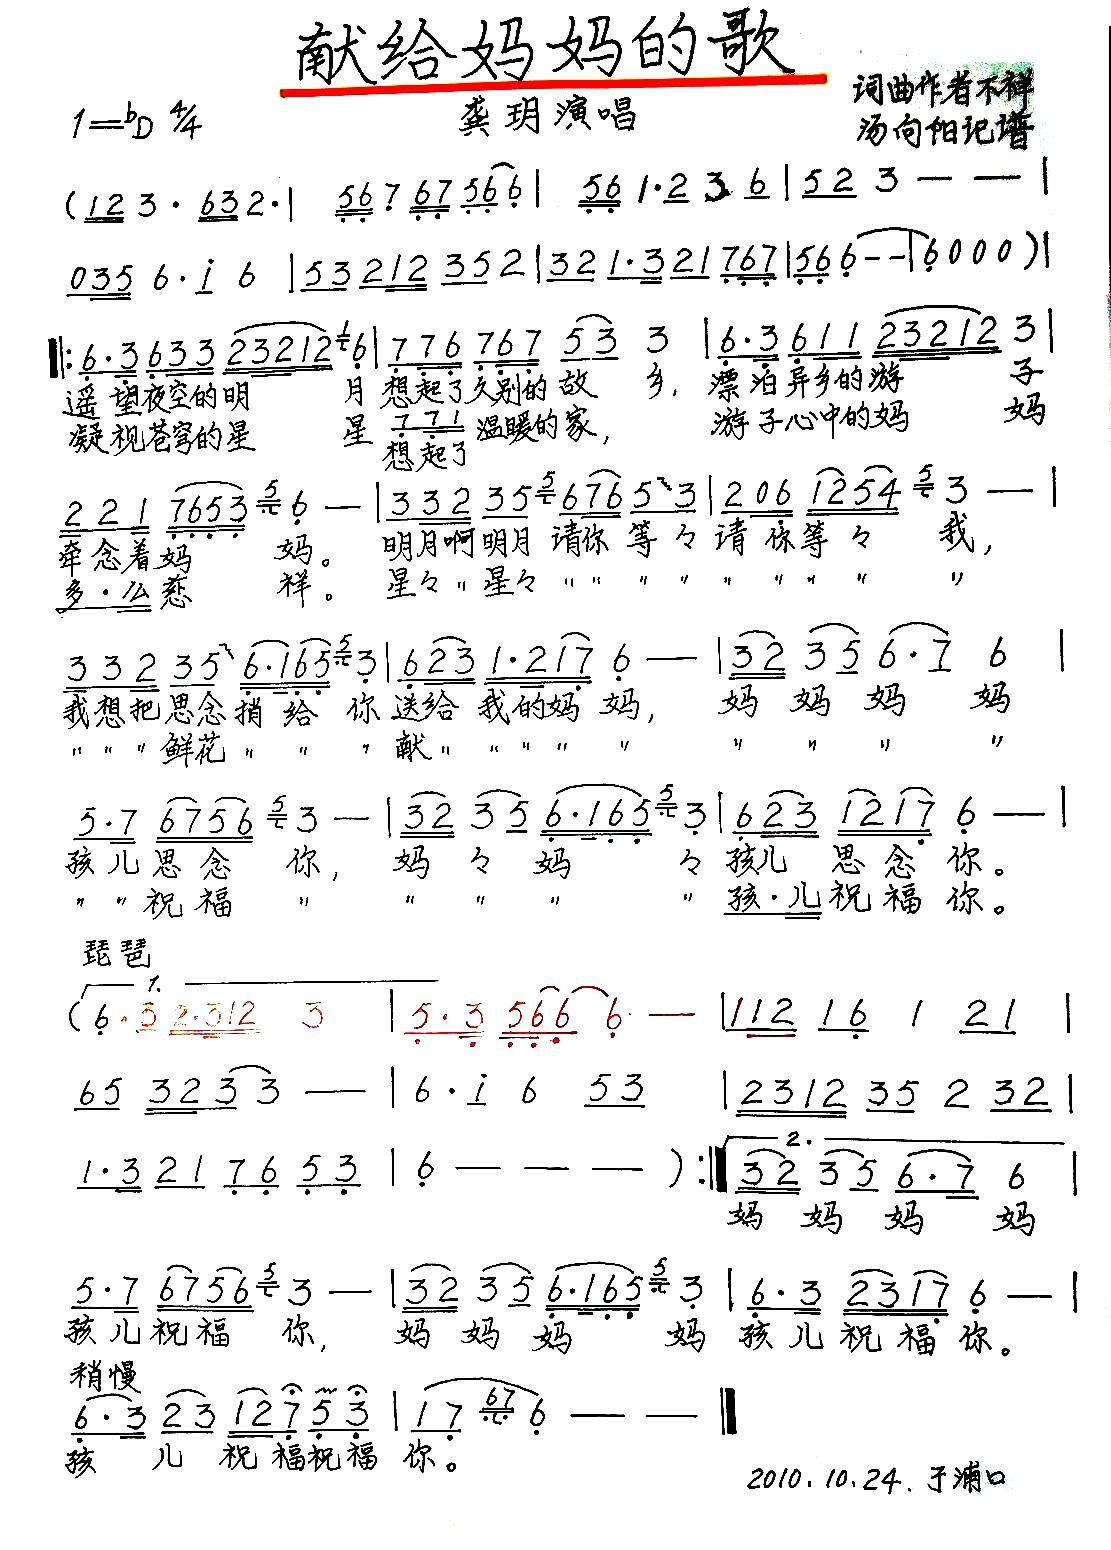 献给妈妈的歌
1=bD 4/4
龚玥演唱
词曲作者不祥
汤向阳记谱
(123·632·| 567 67 566| 561·236|523——|
0356·i6|53212 352|321·321767|566——|6000)|
6·3633232126|776767533|6·361123212 3|
遥望夜空的明月想起了久别的故乡,漂泊异乡的游子
凝视苍穹的星星 771 温暖的家,游子心中的妈妈
想起了
221765356—|33235567653|206125453—|
牵念着妈妈。明月啊明月请你等々请你等々我,
多·么慈祥。星々〃星々〃〃〃〃〃〃〃〃〃
332356·16553|6231·2176—|32356·76|
我想把思念捎给你送给我的妈妈,妈妈妈妈
〃〃〃鲜花〃〃〃献〃〃〃〃〃〃〃〃〃
5·7675653—|32356·16553|62312176—|
孩儿思念你,妈々妈々孩儿思念你。
〃〃祝福〃〃〃〃〃孩·儿祝福你。
琵琶
1.
(6·32·3123|5·35666—|11216121|
653233——|6·i653|231235232|
1·3217653|6———):‖
2.
32356·76|
妈妈妈妈
5·7675653—|32356·16553|6·323176—|
孩儿祝福你,妈妈妈妈孩儿祝福你。
稍慢
6·32312753|17676——‖
孩儿祝福祝福你。
2010.10.24.于浦口